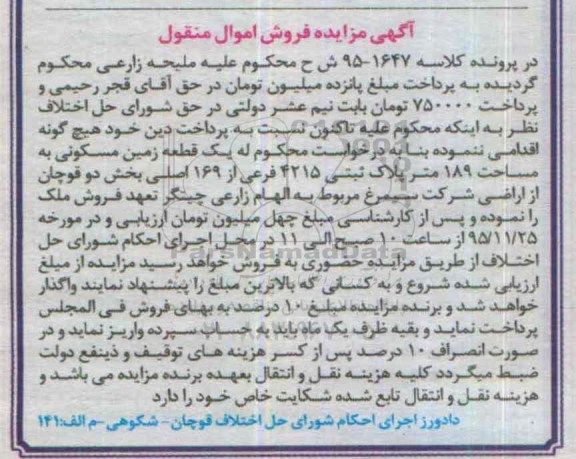 آگهی مزایده فروش اموال منقول
در پرونده کلاسه ۱۶۴۷-۹۵ ش ح محکوم علیه ملیحه زارعی محکوم
گردیده به پرداخت مبلغ پانزده میلیون تومان در حق آقای قجر رحیمی و
پرداخت ۷۵۰۰۰۰ تومان بابت نیم عشر دولتی در حق شورای حل اختلاف
نظر به اینکه محکوم علیه تاکنون نسبت به پرداخت دین خود هیچ گونه
اقدامی ننموده بنا به درخواست محکوم له یک قطعه زمین مسکونی به
مساحت ۱۸۹ متر پلاک ثبتی ۴۲۱۵ فرعی از ۱۶۹ اصلی بخش دو قوچان
از اراضی شرکت سیمرغ مربوط به الهام زارعی چیتگر تعهد فروش ملک
را نموده و پس از کارشناسی مبلغ چهل میلیون تومان ارزیابی و در مورخه
۹۵/۱۱/۲۵ از ساعت ۱۰ صبح الی ۱۱ در محل اجرای احکام شورای حل
اختلاف از طریق مزایده حضوری به فروش خواهد رسید مزایده از مبلغ
ارزیابی شده شروع و به کسانی که بالاترین مبلغ را پیشنهاد نمایند واگذار
خواهد شد و برنده مزایده مبلغ ۱۰ درصد به بهای فروش فی المجلس
پرداخت نماید و بقیه ظرف یک ماه باید به حساب سپرده واریز نماید و در
صورت انصراف ۱۰ درصد پس از کسر هزینه های توقیف و ذینفع دولت
ضبط میگردد کلیه هزینه نقل و انتقال بعهده برنده مزایده می باشد و
هزینه نقل و انتقال تابع شده شکایت خاص خود را دارد
دادورز اجرای احکام شورای حل اختلاف قوچان- شکوهی -م الف:۱۴۱
ParsNamadData